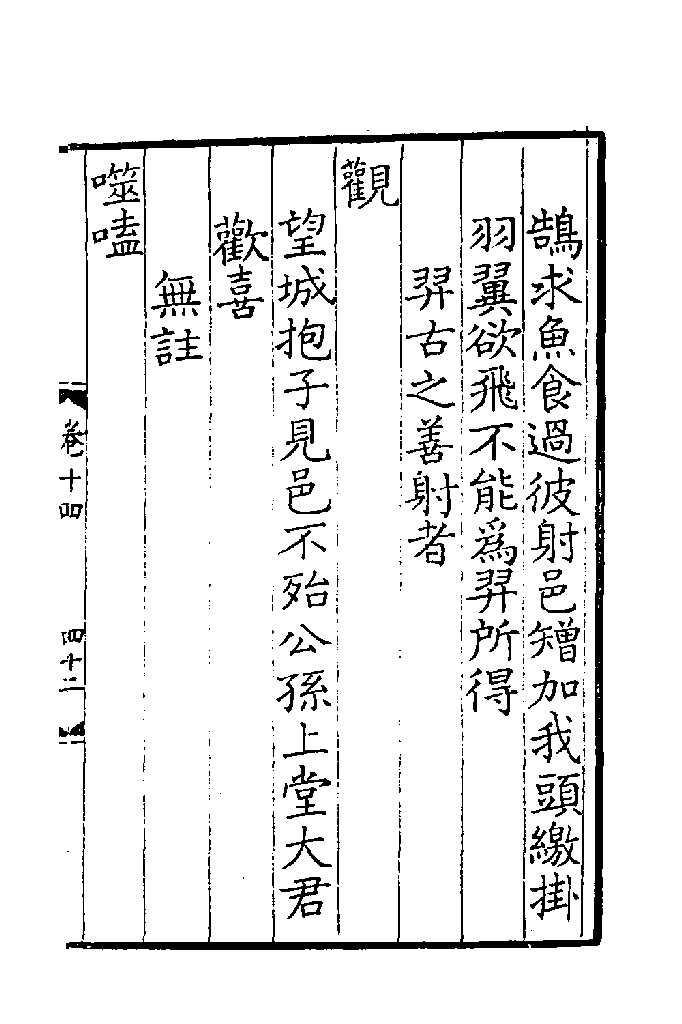 鵠求魚食過彼射邑矰加我頭繳掛
羽翼欲飛不能為羿所得
羿古之善射者
觀
望城抱子見邑不殆公孫上堂大君
歡喜
無註
噬嗑
卷十四
四十二